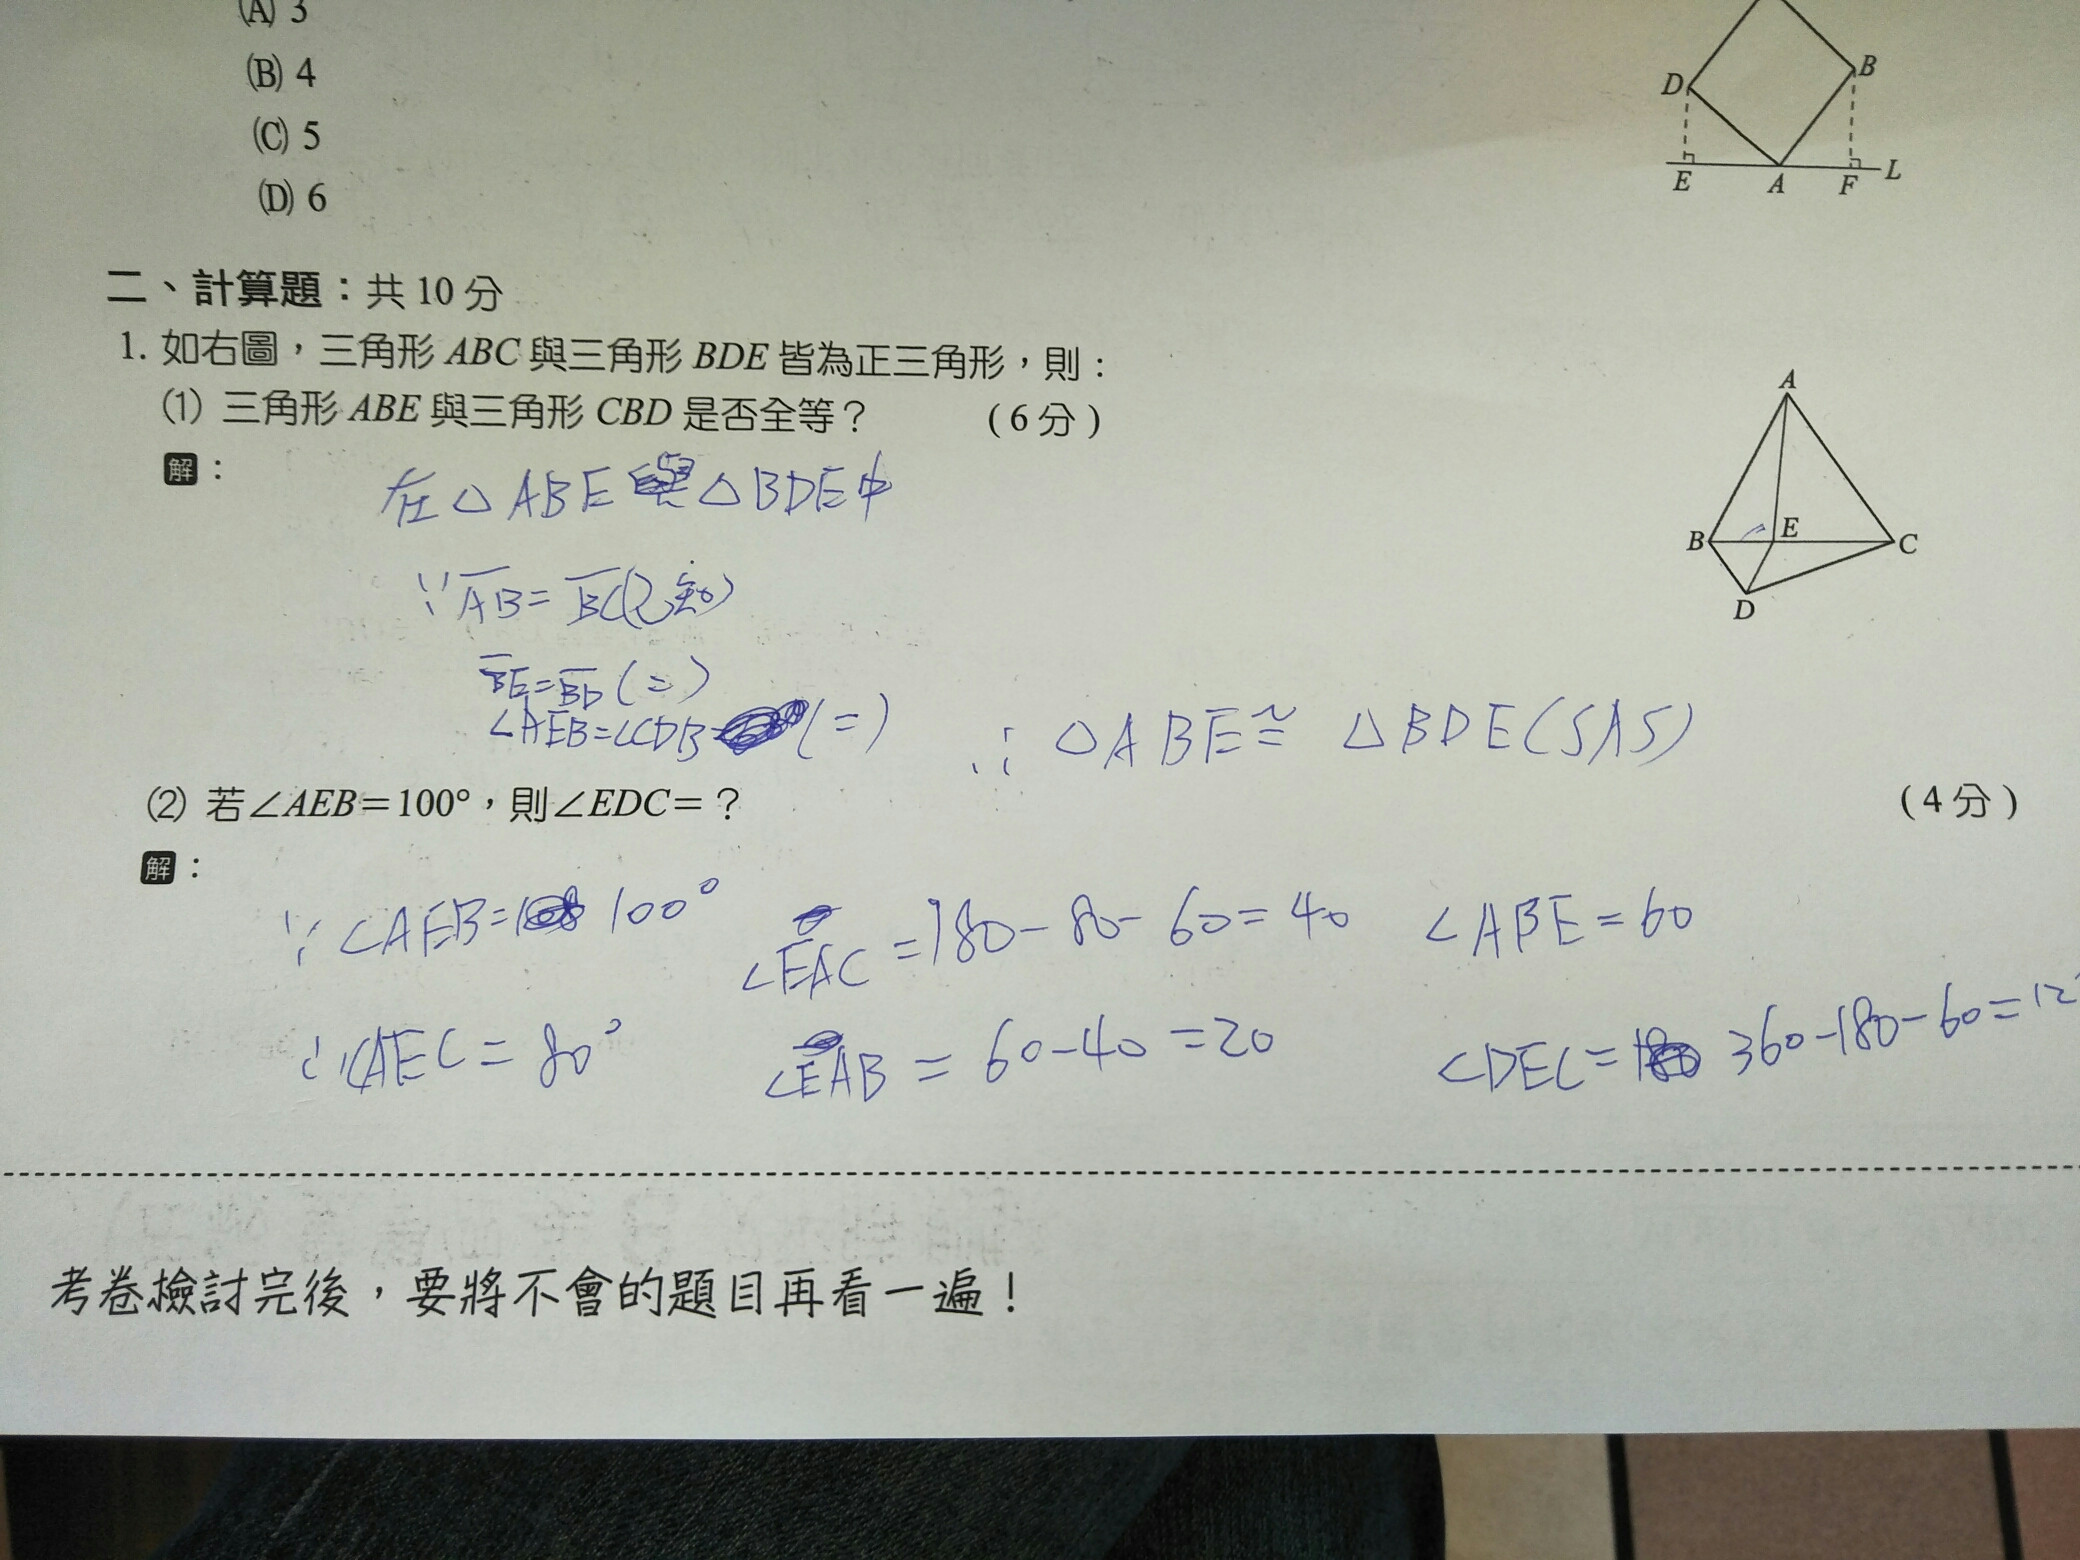 (A) 3
(B) 4
(C) 5
(D) 6
D
B
E
A
F
L
二、計算題：共 10 分
1. 如右圖，三角形 ABC 與三角形 BDE 皆為正三角形，則：
(1) 三角形 ABE 與三角形 CBD 是否全等？ (6 分)
解：
在△ABE 與 △BDE中
∵ AB = BC(已知)
BE = BD (=)
∠AEB=∠CDB= (=)
∴ △ABE≅ △BDE(SAS)
A
B
E
C
D
(2) 若∠AEB＝100°，則∠EDC＝？ (4 分)
解：
∵ ∠AEB= 100°
∠EAC =180-80-60=40
∠ABE=60
∴ ∠AEC=80°
∠EAB = 60-40=20
∠DEC= 360-180-60=12
考卷檢討完後，要將不會的題目再看一遍！